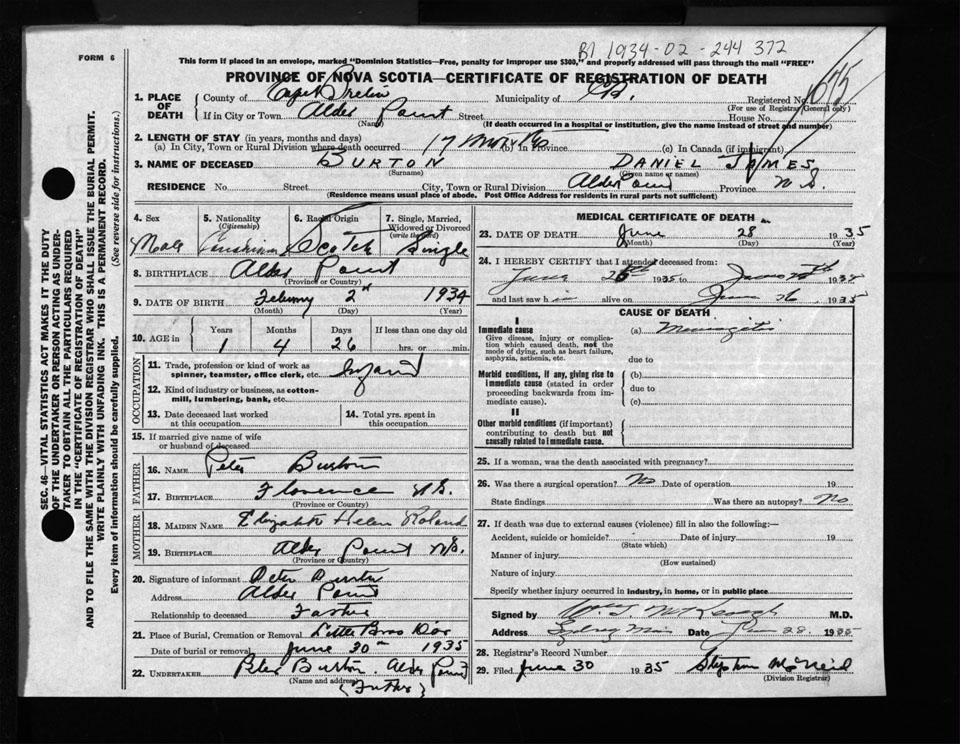 B1 1934-02-244372
FORM 6
This form if placed in an envelope, marked "Dominion Statistics—Free, penalty for improper use $300," and properly addressed will pass through the mail "FREE"
PROVINCE OF NOVA SCOTIA—CERTIFICATE OF REGISTRATION OF DEATH
1. PLACE OF DEATH
County of Cape Breton Municipality of C.B. Registered No.
(For use of Registrar General only)
If in City or Town Alder Point Street House No.
(Name) (If death occurred in a hospital or institution, give the name instead of street and number)
2. LENGTH OF STAY (in years, months and days)
(a) In City, Town or Rural Division where death occurred 17 Months (b) In Province (c) In Canada (if immigrant)
3. NAME OF DECEASED BURTON DANIEL JAMES
(Surname) (Given name or names)
RESIDENCE No. Street City, Town or Rural Division Alder Point Province N.S.
(Residence means usual place of abode. Post Office Address for residents in rural parts not sufficient)
4. Sex
Male
5. Nationality
(Citizenship)
6. Racial Origin
Scotch
7. Single, Married, Widowed or Divorced
(write the word)
Single
8. BIRTHPLACE Alder Point
(Province or Country)
9. DATE OF BIRTH 2 1934
(Month) (Day) (Year)
10. AGE in
Years Months Days If less than one day old
1 4 26 hrs. or min.
OCCUPATION
11. Trade, profession or kind of work as spinner, teamster, office clerk, etc. Infant
12. Kind of industry or business, as cotton-mill, lumbering, bank, etc.
13. Date deceased last worked at this occupation
14. Total yrs. spent in this occupation
15. If married give name of wife or husband of deceased
FATHER
16. NAME Peter Burton
17. BIRTHPLACE Florence N.S.
(Province or Country)
MOTHER
18. MAIDEN NAME Elizabeth Helen Roland
19. BIRTHPLACE Alder Point N.S.
(Province or Country)
20. Signature of informant Peter Burton
Address Alder Point
Relationship to deceased Father
21. Place of Burial, Cremation or Removal Little Bras Dor
Date of burial or removal June 30th 1935
22. UNDERTAKER Peter Burton. Alder Point
(Name and address)
(Father)
MEDICAL CERTIFICATE OF DEATH
23. DATE OF DEATH June 28 1935
(Month) (Day) (Year)
24. I HEREBY CERTIFY that I attended deceased from:
June 1935 to 1935
and last saw h alive on June 26 1935
CAUSE OF DEATH
I
Immediate cause
Give disease, injury or complication which caused death, not the mode of dying, such as heart failure, asphyxia, asthenia, etc.
(a) Meningitis
due to
Morbid conditions, if any, giving rise to immediate cause (stated in order proceeding backwards from immediate cause).
(b)
due to
(c)
II
Other morbid conditions (if important) contributing to death but not causally related to immediate cause.
25. If a woman, was the death associated with pregnancy?
26. Was there a surgical operation? No Date of operation 19
State findings Was there an autopsy? No
27. If death was due to external causes (violence) fill in also the following:—
Accident, suicide or homicide? Date of injury 19
(State which)
Manner of injury
(How sustained)
Nature of injury
Specify whether injury occurred in industry, in home, or in public place
Signed by M.D.
Address Sydney Mines Date June 28. 1935
28. Registrar's Record Number
29. Filed June 30 1935 Stephen McNeil
(Division Registrar)
SEC. 46—VITAL STATISTICS ACT MAKES IT THE DUTY
OF THE UNDERTAKER OR PERSON ACTING AS UNDERTAKER TO OBTAIN ALL THE PARTICULARS REQUIRED
IN THE "CERTIFICATE OF REGISTRATION OF DEATH"
AND TO FILE THE SAME WITH THE DIVISION REGISTRAR WHO SHALL ISSUE THE BURIAL PERMIT.
WRITE PLAINLY WITH UNFADING INK. THIS IS A PERMANENT RECORD.
Every item of information should be carefully supplied. (See reverse side for instructions.)